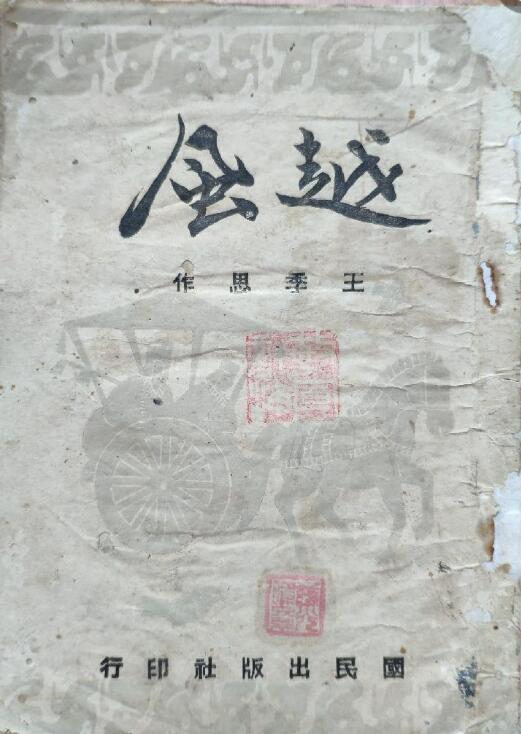 越風
王季思作
國民出版社印行